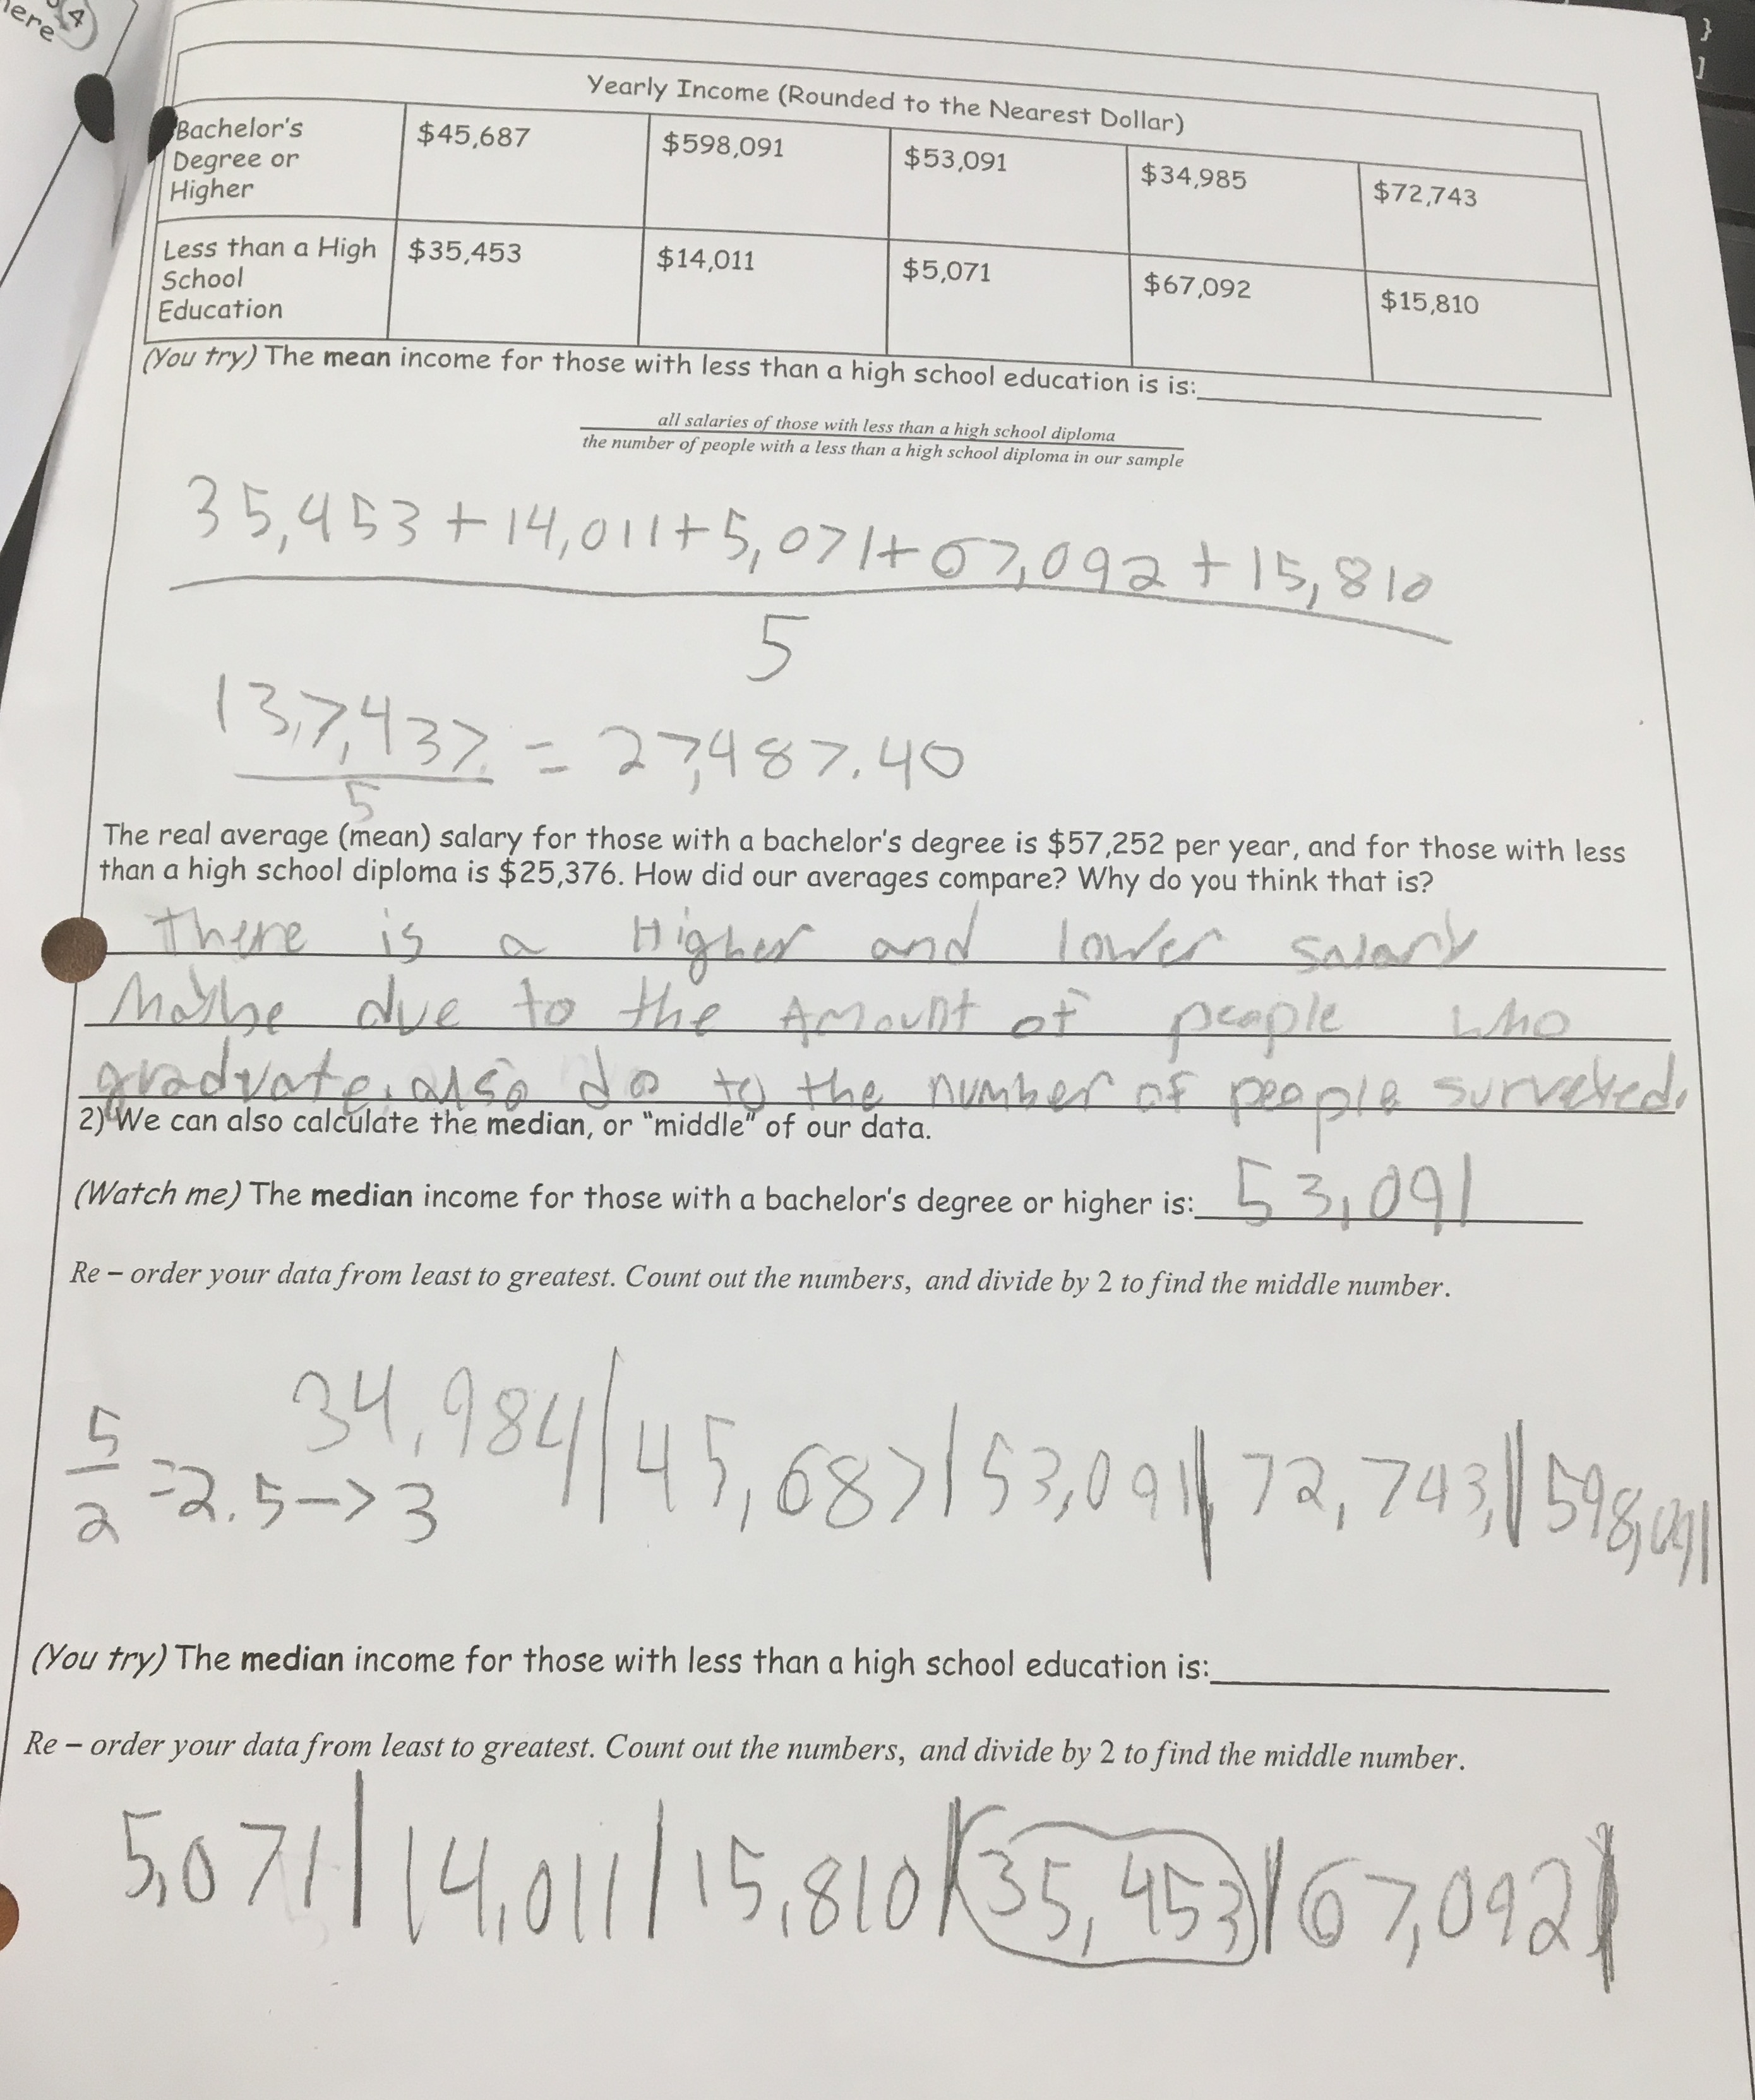 4
ere
}
]
Yearly Income (Rounded to the Nearest Dollar)
Bachelor's Degree or Higher $45,687 $598,091 $53,091 $34,985 $72,743
Less than a High School Education $35,453 $14,011 $5,071 $67,092 $15,810
(You try) The mean income for those with less than a high school education is is:
all salaries of those with less than a high school diploma
the number of people with a less than a high school diploma in our sample
35,453 + 14,011 + 5,071 + 67,092 + 15,810
5
13,7,437 = 27,487.40
5
The real average (mean) salary for those with a bachelor's degree is $57,252 per year, and for those with less
than a high school diploma is $25,376. How did our averages compare? Why do you think that is?
There is a Higher and lower salary
Maybe due to the Amount of people who
graduate. also do to the number of people surveked.
2) We can also calculate the median, or "middle" of our data.
(Watch me) The median income for those with a bachelor's degree or higher is: 53,091
Re – order your data from least to greatest. Count out the numbers, and divide by 2 to find the middle number.
5/2 = 2.5 -> 3 34,984 | 45,687 | 53,091 | 72,743, | 598,091
(You try) The median income for those with less than a high school education is:
Re – order your data from least to greatest. Count out the numbers, and divide by 2 to find the middle number.
5,071 | 14,011 | 15,810 | 35,453 | 67,092 |